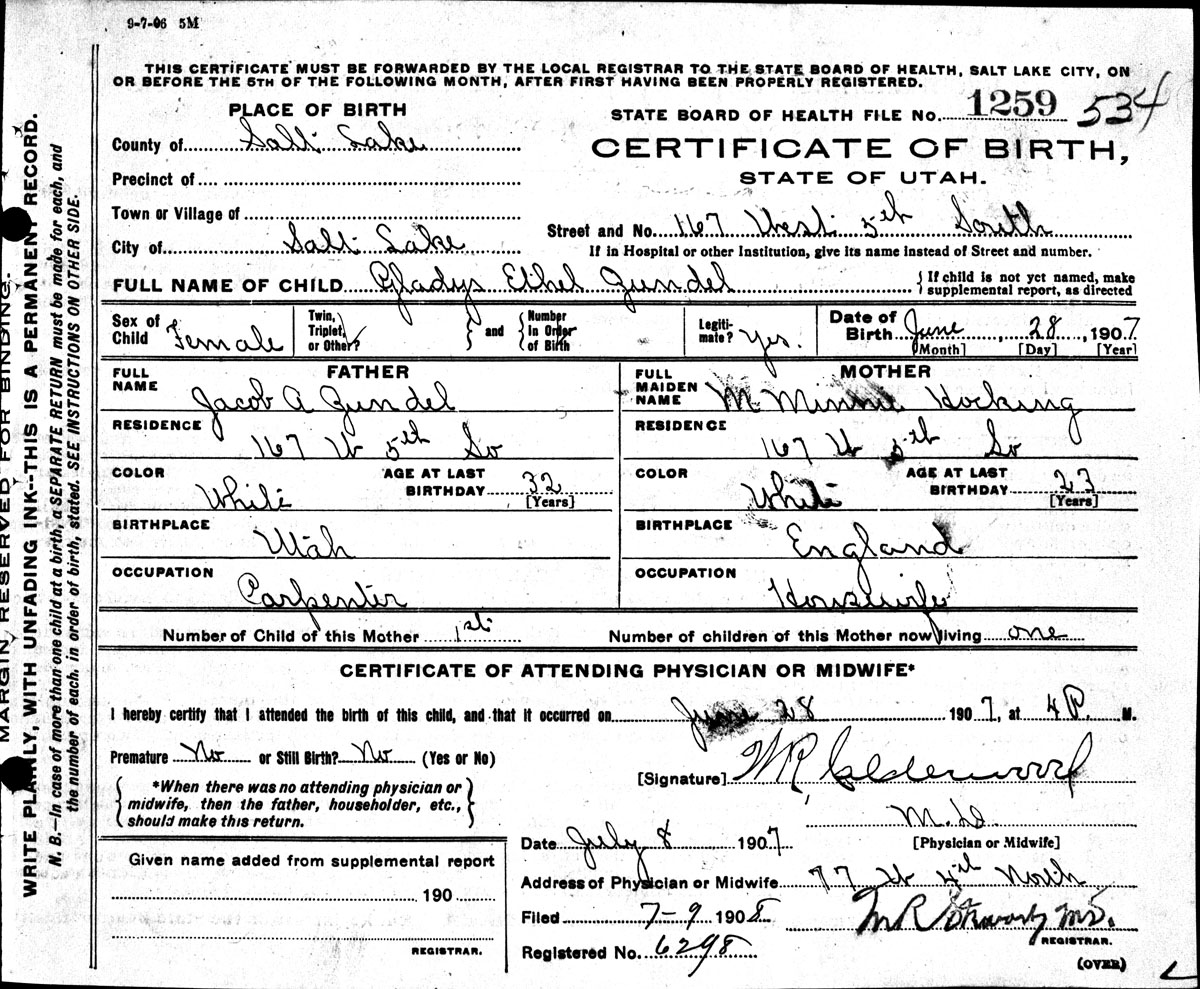 9-7-06 5M
THIS CERTIFICATE MUST BE FORWARDED BY THE LOCAL REGISTRAR TO THE STATE BOARD OF HEALTH, SALT LAKE CITY, ON
OR BEFORE THE 5TH OF THE FOLLOWING MONTH, AFTER FIRST HAVING BEEN PROPERLY REGISTERED.
PLACE OF BIRTH
STATE BOARD OF HEALTH FILE NO. 1259 534
County of Salt Lake
CERTIFICATE OF BIRTH,
STATE OF UTAH.
Precinct of
Town or Village of
Street and No. 167 West 5th South
City of Salt Lake
If in Hospital or other Institution, give its name instead of Street and number.
FULL NAME OF CHILD Gladys Ethel Gundel
{If child is not yet named, make
supplemental report, as directed
Sex of Child Female
Twin, Triplet, or Other?
and
Number In Order of Birth
Legiti-mate? Yes.
Date of Birth June, 28, 1907
[Month] [Day] [Year]
FATHER
FULL NAME Jacob A Gundel
RESIDENCE 167 W 5th So
COLOR White
AGE AT LAST BIRTHDAY 32 [Years]
BIRTHPLACE Utah
OCCUPATION Carpenter
MOTHER
FULL MAIDEN NAME M Minnie Hocking
RESIDENCE 167 W 5th So
COLOR White
AGE AT LAST BIRTHDAY 23 [Years]
BIRTHPLACE England
OCCUPATION Housewife
Number of Child of this Mother 1st
Number of children of this Mother now living one
CERTIFICATE OF ATTENDING PHYSICIAN OR MIDWIFE*
I hereby certify that I attended the birth of this child, and that it occurred on June 28 1907, at 4 P. M.
Premature No or Still Birth? No (Yes or No)
[Signature] WR Calderwood
*When there was no attending physician or
midwife, then the father, householder, etc.,
should make this return.
M.D.
[Physician or Midwife]
Date July 8 1907
Address of Physician or Midwife 77 W 4th North
Given name added from supplemental report
190
REGISTRAR.
Filed 7-9 1908
M.D.
REGISTRAR.
Registered No. 6298
(OVER)
MARGIN RESERVED FOR BINDING.
WRITE PLAINLY, WITH UNFADING INK--THIS IS A PERMANENT RECORD.
N. B.—In case of more than one child at a birth, a SEPARATE RETURN must be made for each, and
the number of each, in order of birth, stated. SEE INSTRUCTIONS ON OTHER SIDE.